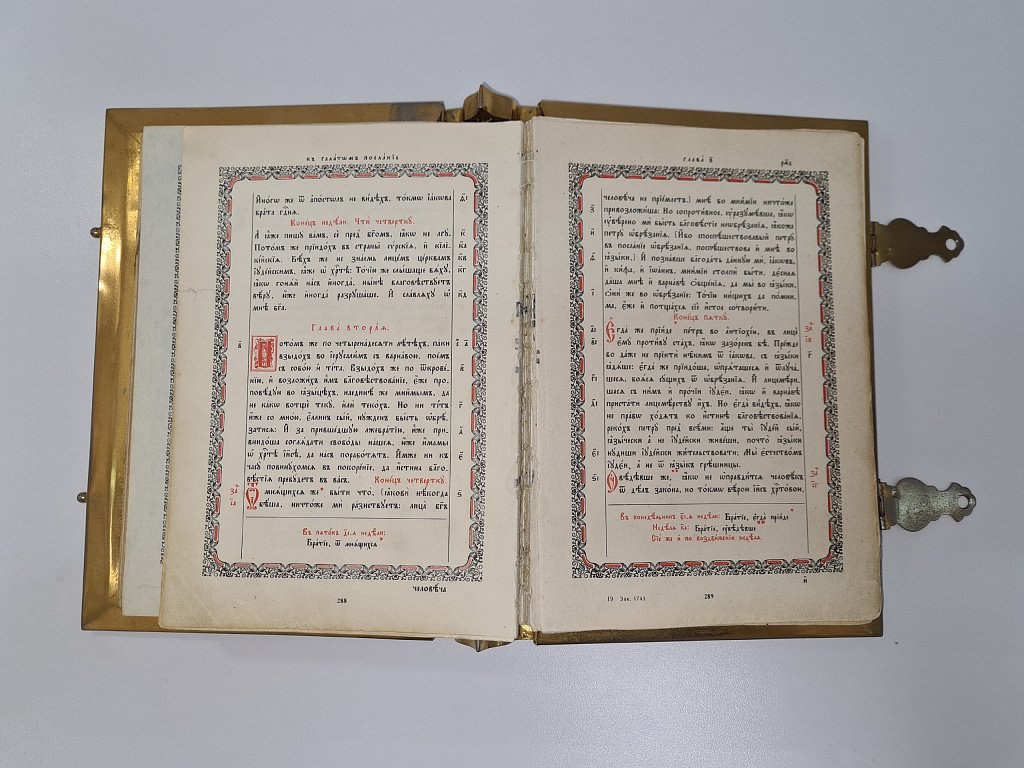 къ галатѡмъ посланіе
И҆но́гѡ же ѿ а҆пⷭ҇тѡлъ не ви́дѣхъ, то́кмѡ і҆а́кѡва
бра́та гдⷭ҇нѧ.
Коне́цъ недѣ́ли. Чтѝ четверткꙋ̀.
А҆ ꙗ҆̀же пишꙋ̀ ва́мъ, сѐ пред̾ бг҃омъ, ꙗ҆́кѡ не лгꙋ̀.
Пото́мъ же прїидо́хъ въ страны̑ сѵ́рскїѧ и҆ кїлі-
кі̑йскїѧ. Бѣ́хъ же не зна́емь лице́мъ цр҃квамъ
і҆ꙋде̑йскимъ, ꙗ҆̀же ѡ҆ хрⷭ҇тѣ̀: То́чїю же слы́шаще бѧ́хꙋ,
ꙗ҆́кѡ гонѧ́й на́съ и҆ногда̀, ны́нѣ благовѣствꙋ́етъ
вѣ́рꙋ, ю҆́же и҆ногда̀ разрꙋша́ше. И҆ сла́влѧхꙋ ѡ҆
мнѣ̀ бг҃а.
Глава̀ втора́ѧ.
Пото́мъ же по четы́ренадесѧти лѣ́тѣхъ, па́ки
взыдо́хъ во і҆ерⷭ҇ли́мъ съ варна́вою, пое́мъ
съ собо́ю и҆ ті́та. Взыдо́хъ же по ѿкрове́-
нїю, и҆ возложи́хъ и҆̀мъ благовѣствова́нїе, є҆́же про-
повѣ́дꙋю во ꙗ҆зы́цѣхъ, на є҆ди́нѣ же мни̑мымъ, да
не ка́кѡ вотщѐ текꙋ̀, и҆лѝ теко́хъ. Но ни ті́тъ
и҆́же со мно́ю, є҆́ллинъ сы́й, нꙋ́жденъ бы́сть ѡ҆брѣ́-
затисѧ: И҆ за прише́дшꙋю лжебра́тїю, и҆̀же при-
внидо́ша соглѧ́дати свобо́ды на́шеѧ, ю҆́же и҆́мамы
ѡ҆ хрⷭ҇тѣ̀ і҆и҃сѣ, да на́съ порабо́тѧтъ. И҆̀мже ни къ
часꙋ̀ повинꙋ́хомсѧ въ покоре́нїе, да и҆́стина благо-
вѣ́стїѧ пребꙋ́детъ въ ва́съ. Коне́цъ четверткꙋ̀.
Ѿ мнѧ́щихсѧ же * бы́ти что̀, ꙗ҆́кови нѣ́когда
бѣ́ша, ничто́же мѝ ра́знствꙋетъ: лица̀ бг҃ъ
Въ пѧто́къ і҃д-ѧ недѣ́ли:
Бра́тїе, ѿ мнѧ́щихсѧ
человѣ́ча
288
глава̀ в҃
рм҃д
человѣ́ча не прїе́млетъ.) мнѣ́ бо мни́мїи ничто́же
привозложи́ша: Но сопроти́вное, ᲂу҆разꙋмѣ́вше, ꙗ҆́кѡ
ᲂу҆вѣ́рено мѝ бы́сть благовѣ́стїе неѡбрѣ́занїѧ, ꙗ҆́коже
петрꙋ̀ ѡ҆брѣ́занїѧ. (И҆́бо споспѣ́шествовавый петрꙋ̀
въ посла́нїе ѡ҆брѣ́занїѧ, поспѣшествова̀ и҆ мнѣ̀ во
ꙗ҆зы́ки.) И҆ позна́вше благода́ть да́ннꙋю мѝ, і҆а́кѡвъ,
и҆ ки́фа, и҆ і҆ѡа́ннъ, мни́мїи столпѝ бы́ти, десни̑цы
да́ша мнѣ̀ и҆ варна́вѣ ѻ҆бще́нїѧ, да мы̀ во ꙗ҆зы́ки,
ѻ҆ни́ же во ѡ҆брѣ́занїе: То́чїю ни́щихъ да по́мни-
ма, є҆́же и҆ потща́хсѧ сїѐ и҆́стое сотвори́ти.
Коне́цъ пѧткꙋ̀.
Є҆гда́ же прїи́де * пе́тръ во а҆нтїохі́ю, въ лицѐ
є҆мꙋ̀ проти́вꙋ ста́хъ, ꙗ҆́кѡ зазо́ренъ бѣ̀. Пре́жде
бо да́же не прїитѝ нѣ̑кимъ ѿ і҆а́кѡва, съ ꙗ҆зы̑ки
ꙗ҆дѧ́ше: є҆гда́ же прїидо́ша, ѡ҆прѧ́ташесѧ и҆ ѿлꙋча́-
шесѧ, боѧ́сѧ сꙋ́щихъ ѿ ѡ҆брѣ́занїѧ. И҆ лицемѣ́ри-
шасѧ съ ни́мъ и҆ про́чїи і҆ꙋде́и, ꙗ҆́кѡ и҆ варна́вѣ
приста́ти лицемѣ́рствꙋ и҆́хъ. Но є҆гда̀ ви́дѣхъ, ꙗ҆́кѡ
не пра́вѡ хо́дѧтъ ко и҆́стинѣ благовѣствова́нїѧ,
реко́хъ петрꙋ̀ пред̾ всѣ́ми: а҆́ще ты̀ і҆ꙋде́й сы́й,
ꙗ҆зы́чески а҆ не і҆ꙋде́йски живе́ши, почто̀ ꙗ҆зы́ки
нꙋ́диши і҆ꙋде́йски жи́тельствовати; Мы̀ є҆стество́мъ
і҆ꙋде́и, а҆ не ѿ ꙗ҆зы̑къ грѣ̑шницы.
Оу҆вѣ́дѣвше же **, ꙗ҆́кѡ не ѡ҆правди́тсѧ человѣ́къ
ѿ дѣ́лъ зако́на, но то́кмѡ вѣ́рою і҆и҃съ хрⷭ҇то́вою,
Въ понедѣ́льникъ є҃і-ѧ недѣ́ли: Бра́тїе, є҆гда̀ прїи́де *
Недѣ́лѧ к҃а: Бра́тїе, ᲂу҆вѣ́дѣвше **
Сїѐ же и҆ по воздви́женїи недѣ́лѧ.
и҆
19 Зак. 1743
289